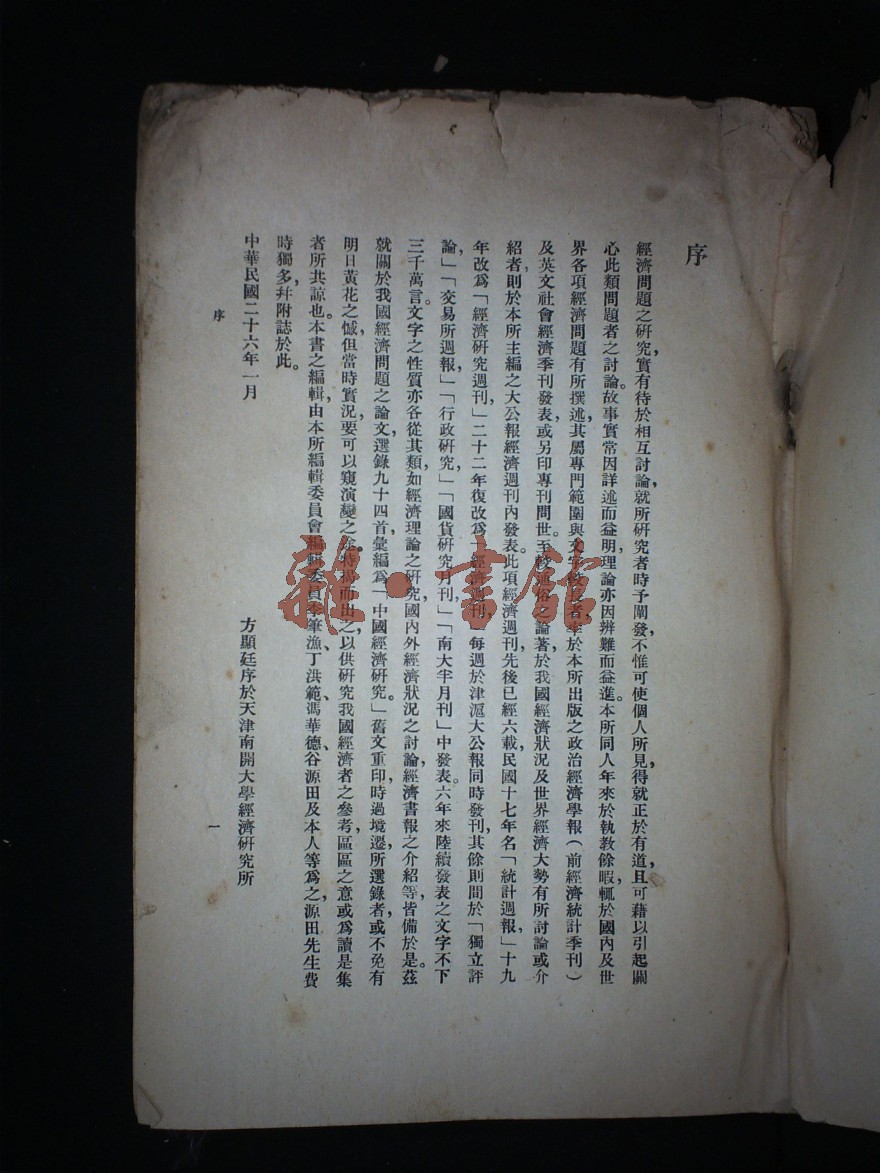 序
經濟問題之研究,實有待於相互討論,就所研究者時予闡發,不惟可使個人所見,得就正於有道,且可藉以引起關
心此類問題者之討論。故事實常因詳述而益明,理論亦因辨難而益進。本所同人年來於執教餘暇,輒於國內及世
界各項經濟問題有所撰述,其屬專門範圍與文字較長者,率於本所出版之政治經濟學報(前經濟統計季刊)
及英文社會經濟季刊發表,或另印專刊問世。至較通俗之論著,於我國經濟狀況及世界經濟大勢有所討論或介
紹者,則於本所主編之大公報經濟週刊內發表。此項經濟週刊,先後已經六載,民國十七年名「統計週報,」十九
年改爲「經濟研究週刊,」二十二年復改爲「經濟週刊,」每週於津滬大公報同時發刊,其餘則間於「獨立評
論,」「交易所週報,」「行政研究,」「國貨研究月刊,」「南大半月刊」中發表。六年來陸續發表之文字不下
三千萬言。文字之性質亦各從其類,如經濟理論之研究,國內外經濟狀況之討論,經濟書報之介紹等,皆備於是。茲
就關於我國經濟問題之論文,選錄九十四首,彙編爲「中國經濟研究。」舊文重印,時過境遷,所選錄者,或不免有
明日黃花之憾,但當時實況,要可以窺演變之迹,特揭而出之,以供研究我國經濟者之參考,區區之意,或爲讀是集
者所共諒也。本書之編輯,由本所編輯委員會編輯委員李筆漁、丁洪範、馮華德、谷源田及本人等爲之,源田先生費
時獨多,幷附誌於此。
中華民國二十六年一月
方顯廷序於天津南開大學經濟研究所
序
一
雜·書館